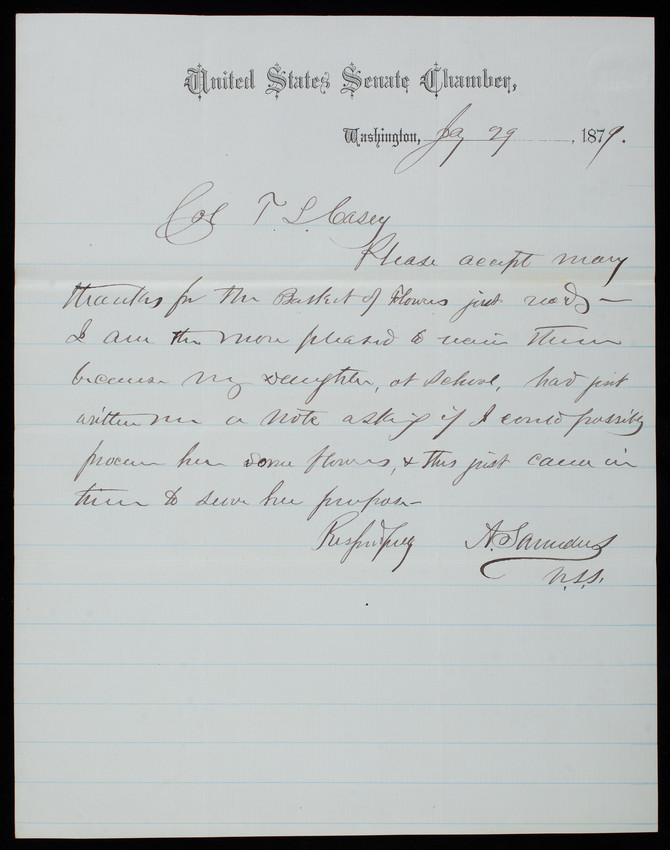 United States Senate Chamber,
Washington, Jay 29, 1879.
Col T. L. Casey
Please accept many
thanks for the Basket of Flowers just recd –
I am the more pleased to receive them
because my daughter, at school, had just
written me a note asking if I could possibly
procure her some flowers, & this just came in
time to serve her purpose –
Respectfully A. Saunders
U.S.S.